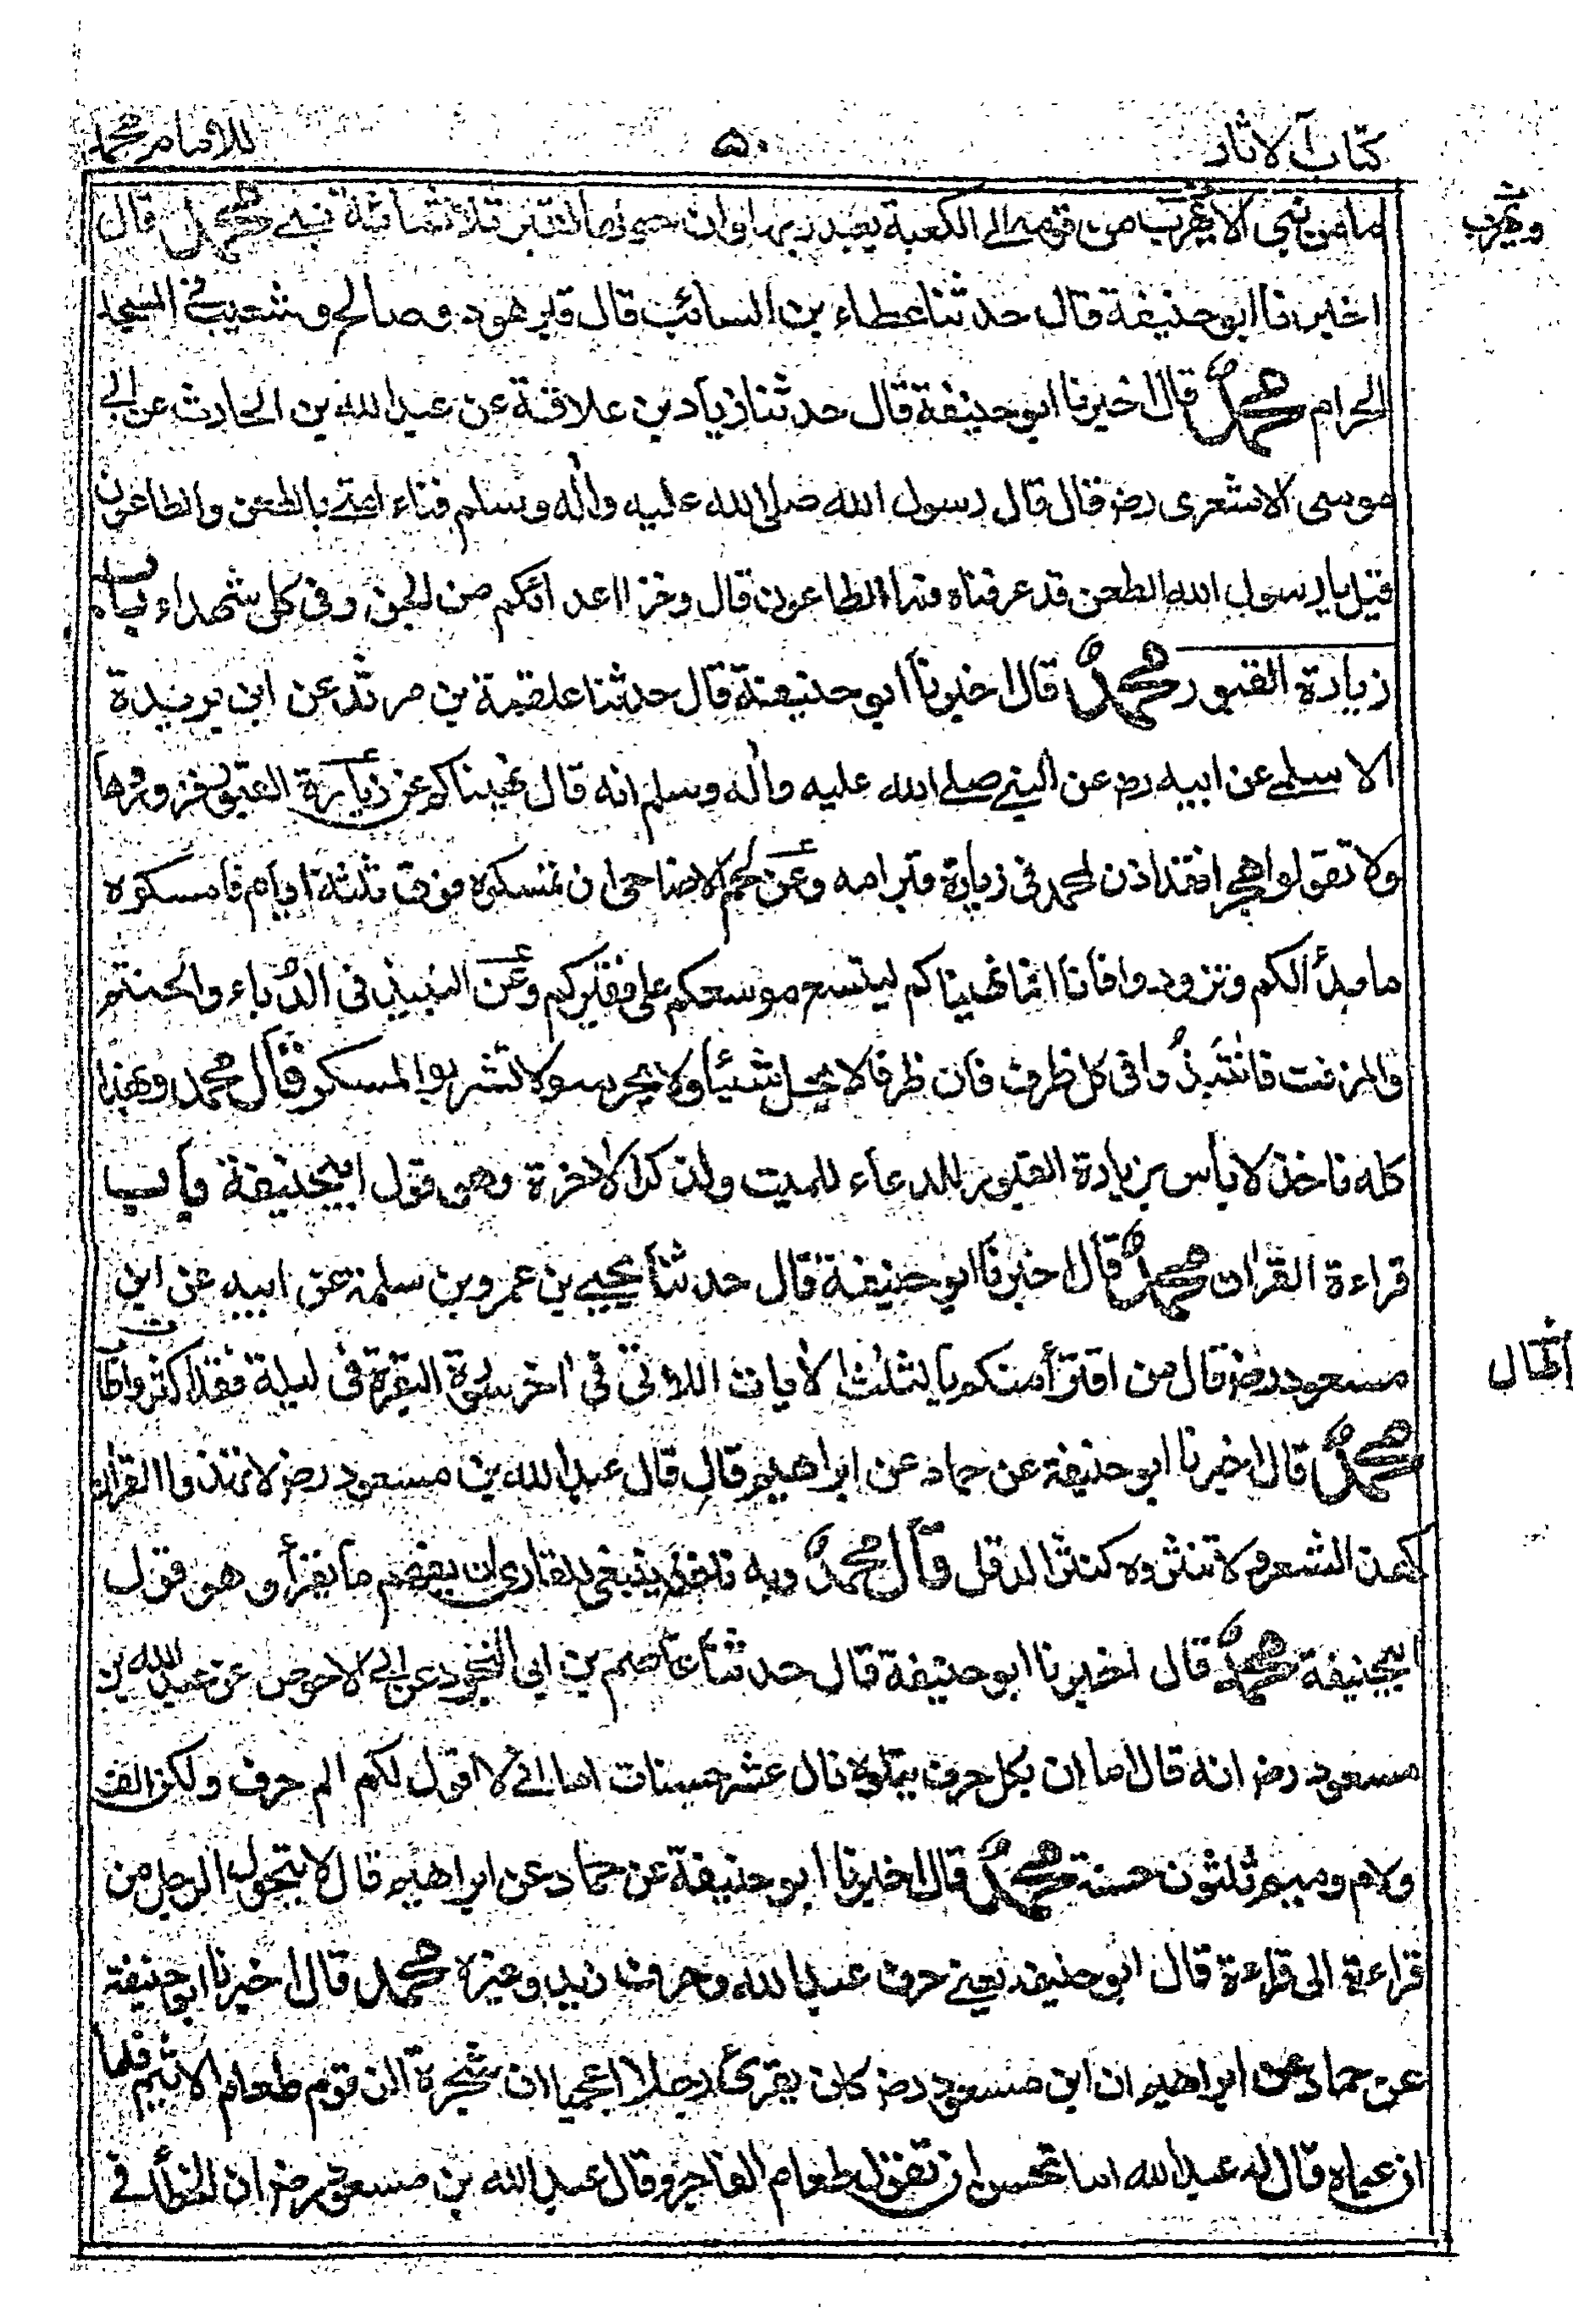 كتاب الآثار ٥٠ للامام محمد
ما من نبي الا يهرب من قومه الى الكعبة يعبد ربها وان حولها لقبر ثلاثمائة نبي محمد قال
ويهرب
اخبرنا ابو حنيفة قال حدثنا عطاء بن السائب قال قبر هود وصالح وشعيب في المسجد
الحرام محمد قال اخبرنا ابو حنيفة قال حدثنا زياد بن علاقة عن عبد الله بن الحارث عن ابي
موسى الاشعرى رضـ قال قال رسول الله صلى الله عليه واٰله وسلم فناء امتي بالطعن والطاعون
قيل يا رسول الله الطعن قد عرفناه فما الطاعون قال وخز اعدائكم من الجن وفى كل شهداء باب
زيارة القبور محمد قال اخبرنا ابو حنيفة قال حدثنا علقمة بن مرثد عن ابن بريدة
الاسلمي عن ابيه رضـ عن النبي صلى الله عليه واٰله وسلم انه قال نهيناكم عن زيارة القبور فزوروها
ولا تقولوا هجرا فقد اذن لمحمد في زيارة قبر امه وعن لحم الاضاحى ان تمسكوه فوق ثلثة ايام فامسكوه
ما بدأ لكم وتزودوا فانا انما نهيناكم ليتسع موسعكم على فقيركم وعن النبيذ فى الدباء والحنتم
والمزفت فانتبذوا فى كل ظرف فان ظرفا لا يحل شيئا ولا يحرمه ولا تشربوا المسكر قال محمد وبهذا
كله ناخذ لا باس بزيارة القبور للدعاء للميت ولذكر الاخرة وهو قول ابيحنيفة باب
قراءة القراٰن محمد قال اخبرنا ابو حنيفة قال حدثنا يحيى بن عمرو بن سلمة عن ابيه عن ابن
مسعود رضـ قال من اقترأ منكم بالثلث الاٰيات اللاتى فى اٰخر سورة البقرة فى ليلة فقد اكثر واطاب
اطال
محمد قال اخبرنا ابو حنيفة عن حماد عن ابراهيم قال قال عبد الله بن مسعود رضـ لا تهذوا القراٰن
كهذ الشعر ولا تنثروه كنثر الدقل قال محمد وبه ناخذ ينبغى للقارى ان يفهم ما يقرأ وهو قول
ابيحنيفة محمد قال اخبرنا ابو حنيفة قال حدثنا عاصم بن ابى النجود عن ابى الاحوص عن عبد الله بن
مسعود رضـ انه قال اما ان بكل حرف يتلوه تال عشر حسنات اما انى لا اقول لكم الم حرف ولكن الف
ولام وميم ثلثون حسنة محمد قال اخبرنا ابو حنيفة عن حماد عن ابراهيم قال لا يتحول الرجل من
قراءة الى قراءة قال ابو حنيفة يعني حرف عبد الله وحرف زيد وغيره محمد قال اخبرنا ابو حنيفة
عن حماد عن ابراهيم ان ابن مسعود رضـ كان يقرئ رجلا اعجميا ان شجرة الزقوم طعام الاثيم فلما
ان عياه قال له عبد الله اما تحسن ان تقول طعام الفاجر وقال عبد الله بن مسعود رضـ ان الخطأ فى